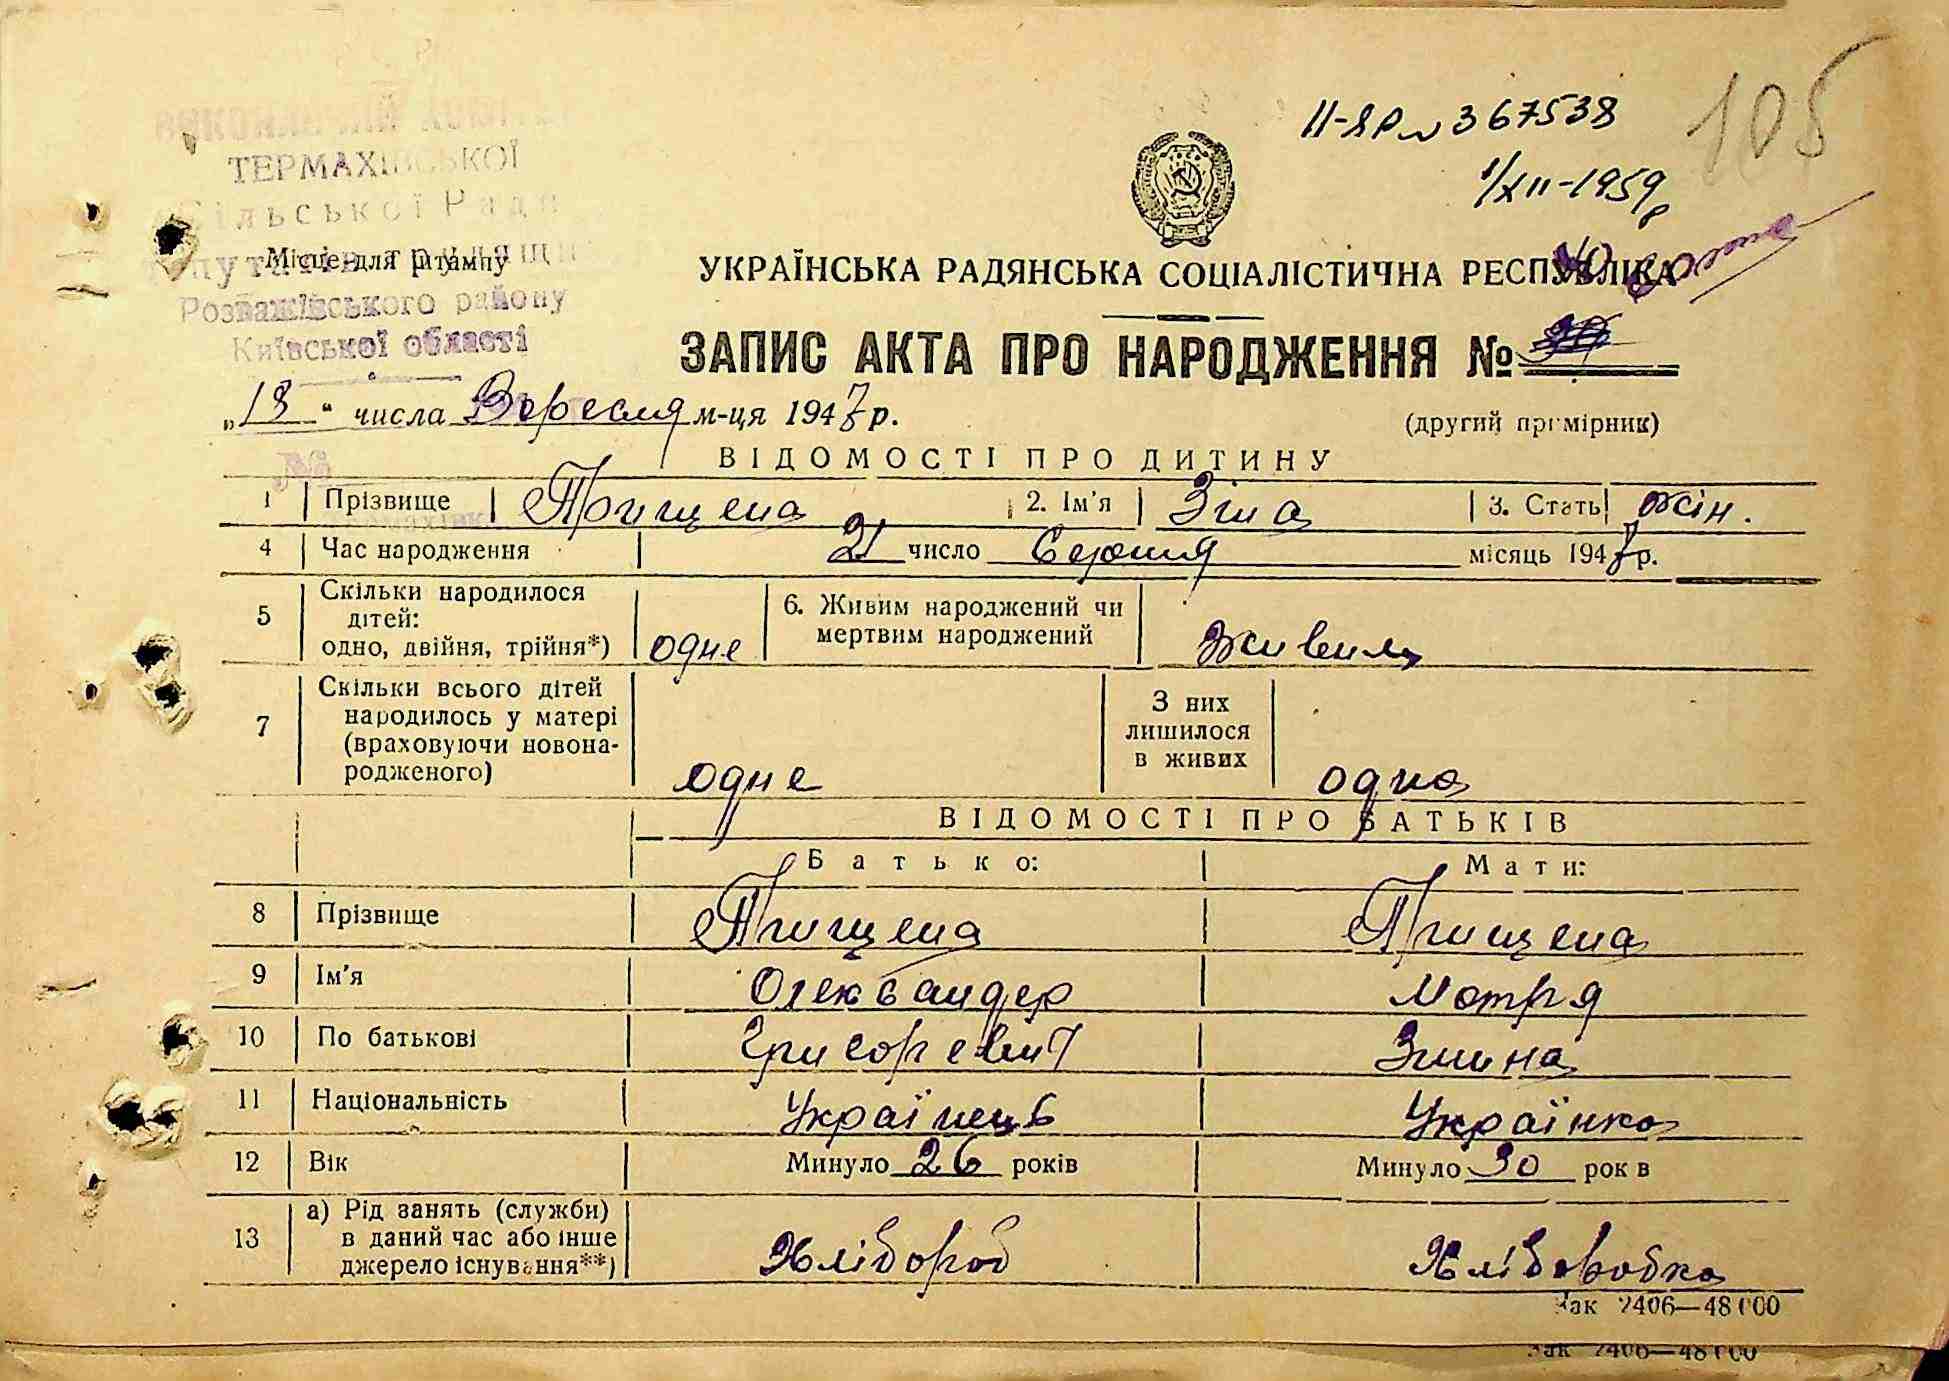 ІІ-ЯР № 367538
1/XII-1959р
105
ТЕРМАХІВСЬКОЇ
Сільської Ради
депутатів трудящих
Місце для штампу
Розважівського району
Київської області
УКРАЇНСЬКА РАДЯНСЬКА СОЦІАЛІСТИЧНА РЕСПУБЛІКА
ЗАПИС АКТА ПРО НАРОДЖЕННЯ №
„18“ числа Вересня м-ця 1947 р.
(другий примірник)
ВІДОМОСТІ ПРО ДИТИНУ
1 Прізвище Прищепа 2. Ім'я Зіна 3. Стать жін.
4 Час народження 21 число Серпня місяць 1947 р.
5 Скільки народилося дітей: одно, двійня, трійня*) одне 6. Живим народжений чи мертвим народжений Живим
7 Скільки всього дітей народилось у матері (враховуючи новона-родженого) одне З них лишилося в живих одна
ВІДОМОСТІ ПРО БАТЬКІВ
Батько: Мати:
8 Прізвище Прищепа Прищепа
9 Ім'я Олександер Мотря
10 По батькові Григорович
11 Національність Українець Українка
12 Вік Минуло 26 років Минуло 30 рок в
13 а) Рід занять (служби) в даний час або інше джерело існування**) Хлібороб Хліборобка
Зак 2406—48000
Зак 2406—48000